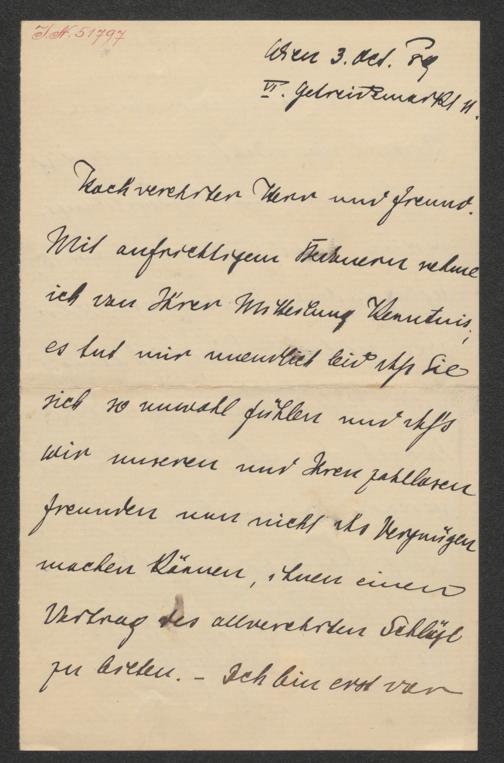 J.N. 51797
Wien 3. Oct. 89
VI. Getreidemarkt 11.
Hochverehrter Herr und Freund.
Mit aufrichtigem Bedauern nehme
ich von Ihrer Mitteilung Kenntnis;
es tut mir unendlich leid daß Sie
sich so unwohl fühlen und daß
wir unseren und Ihren zahllosen
Freunden nun nicht das Vergnügen
machen können, ihnen einen
Vortrag des allverehrten Schlögl
zu bieten. – Ich bin erst vor